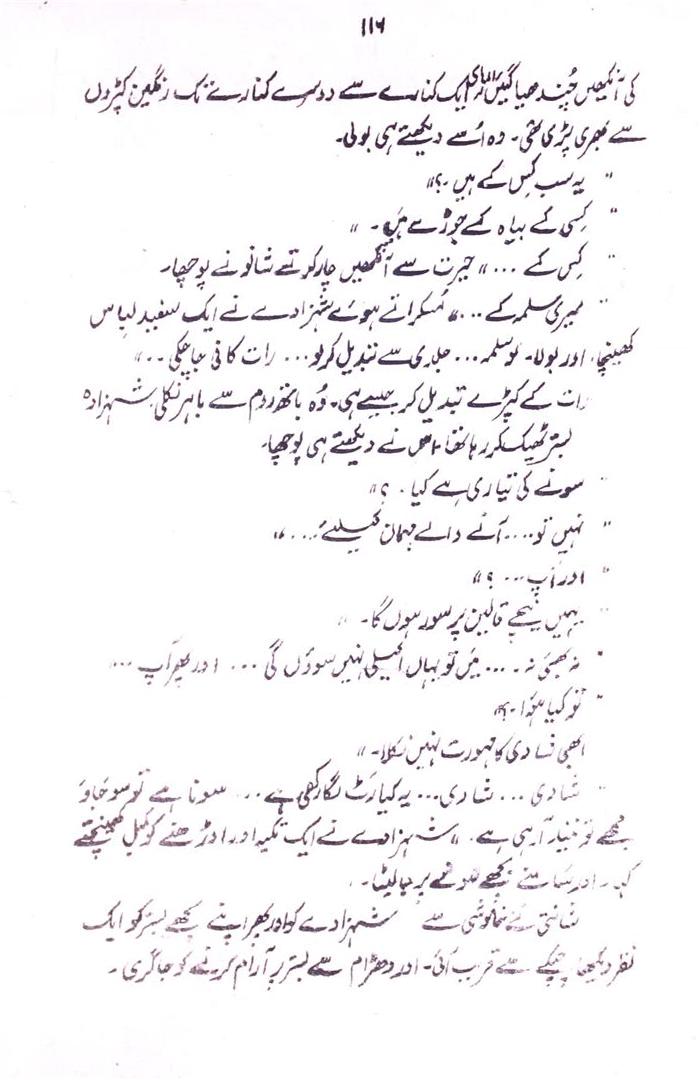 ۱۱۶
کی آنکھیں چندھیا گئیں الماری ایک کنارے سے دوسرے کنارے تک رنگین کپڑوں
سے بھری پڑی تھی۔ وہ اُسے دیکھتے ہی بولی۔
" یہ سب کس کے ہیں ۔؟"
" کسی کے بیاہ کے جوڑے ہیں ۔ "
" کس کے ..." حیرت سے آنکھیں چار کرتے شانو نے پوچھا۔
" میری سلمہ کے ..." مُسکراتے ہوئے شہزادے نے ایک سفید لباس
کھینچا، اور بولا۔ لو سلمہ ... جلدی سے تبدیل کر لو ... رات کافی جا چکی ..."
رات کے کپڑے تبدیل کر جیسے ہی۔ وُہ باتھ روم سے باہر نکلی۔ شہزادہ
بستر ٹھیک کر رہا تھا اس نے دیکھتے ہی پوچھا۔
" سونے کی تیاری ہے کیا . ؟"
" نہیں تو .... آنے والے مہمان کیلئے ...."
" اور آپ ... ؟"
" یہیں نیچے قالین پر سو رہوں گا۔ "
" نہ بھئی نہ .... میں تو یہاں اکیلی نہیں سوؤں گی ... اور پھر آپ ...
" تو کیا ہوا ۔؟"
ابھی شادی کا مہورت نہیں نکلا۔ "
" شادی ... شادی ... یہ کیا رٹ لگا رکھی ہے ... سونا ہے تو سو جاؤ
مجھے تو نیند آ رہی ہے ." شہزادے نے ایک تکیہ اور اوڑھنے کو کمبل کھینچتے
کہا۔ اور سامنے بچھے صوفے پر جا لیٹا۔
شانتی نے خاموشی سے شہزادے کو اور پھر اپنے بچھے بستر کو ایک
نظر دیکھا۔ چپکے سے قریب آئی۔ اور دھڑام سے بستر پر آرام کرنے کو جا گری ۔